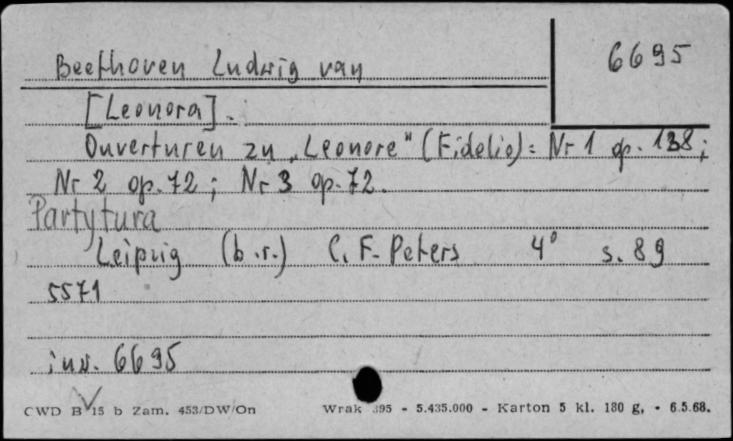 6695
Beethoven Ludwig van
[Leonora].
Ouverturen zu „Leonore" (Fidelio): Nr 1 op. 138;
Nr 2 op. 72; Nr 3 op. 72.
Partytura
Leipzig (b.r.) C. F. Peters 4° s. 89
5571
inw. 6695
CWD B 15 b Zam. 453/DW/On Wrak 395 - 5.435.000 - Karton 5 kl. 180 g, - 6.5.68.